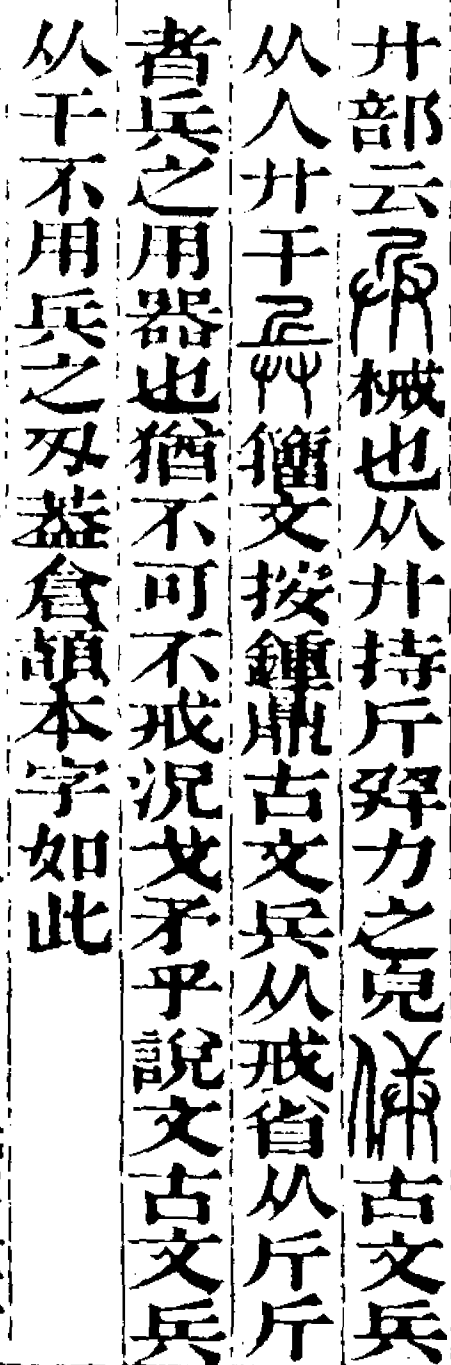 廾部云兵械也从廾持斤幷力之皃𠈻古文兵
从人廾干𢌬籒文按鍾鼎古文兵从戒省从斤斤
者兵之用器也猶不可不戒況戈矛乎說文古文兵
从干不用兵之刄葢倉頡本字如此